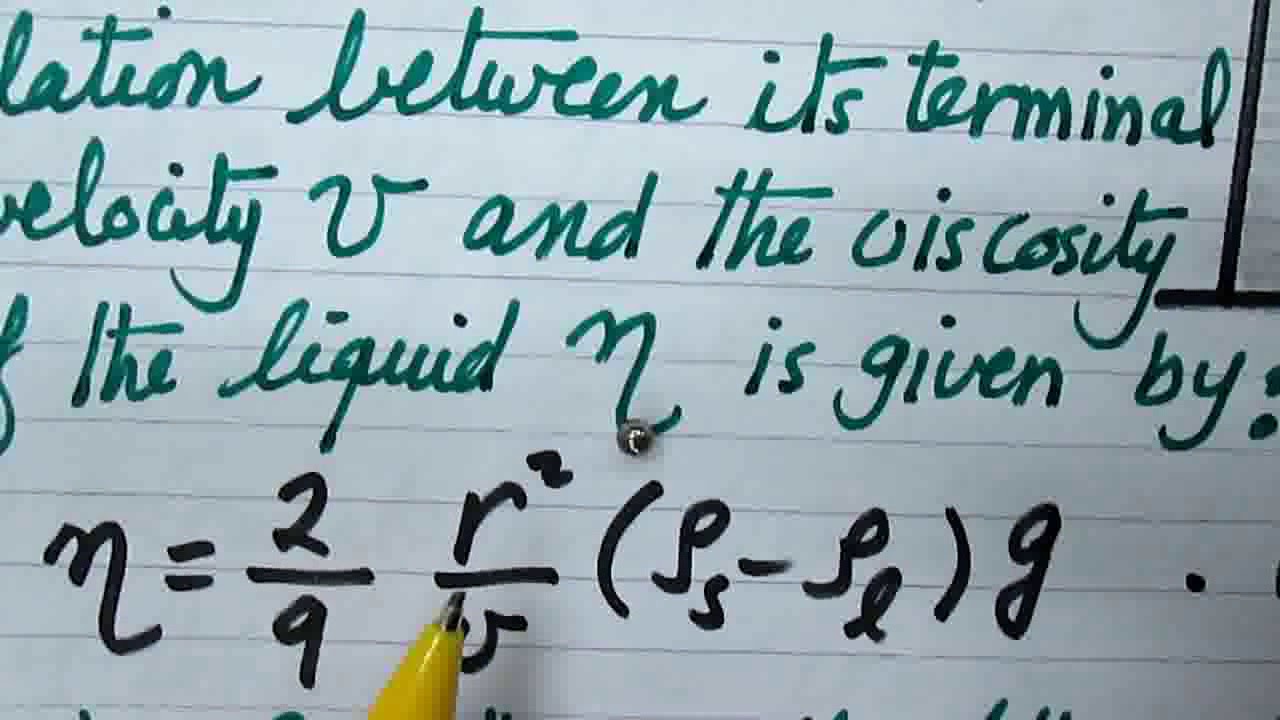 lation between its terminal
velocity v and the viscosity
f the liquid η is given by:
η = 2/9 r²/v (ρs - ρl) g .